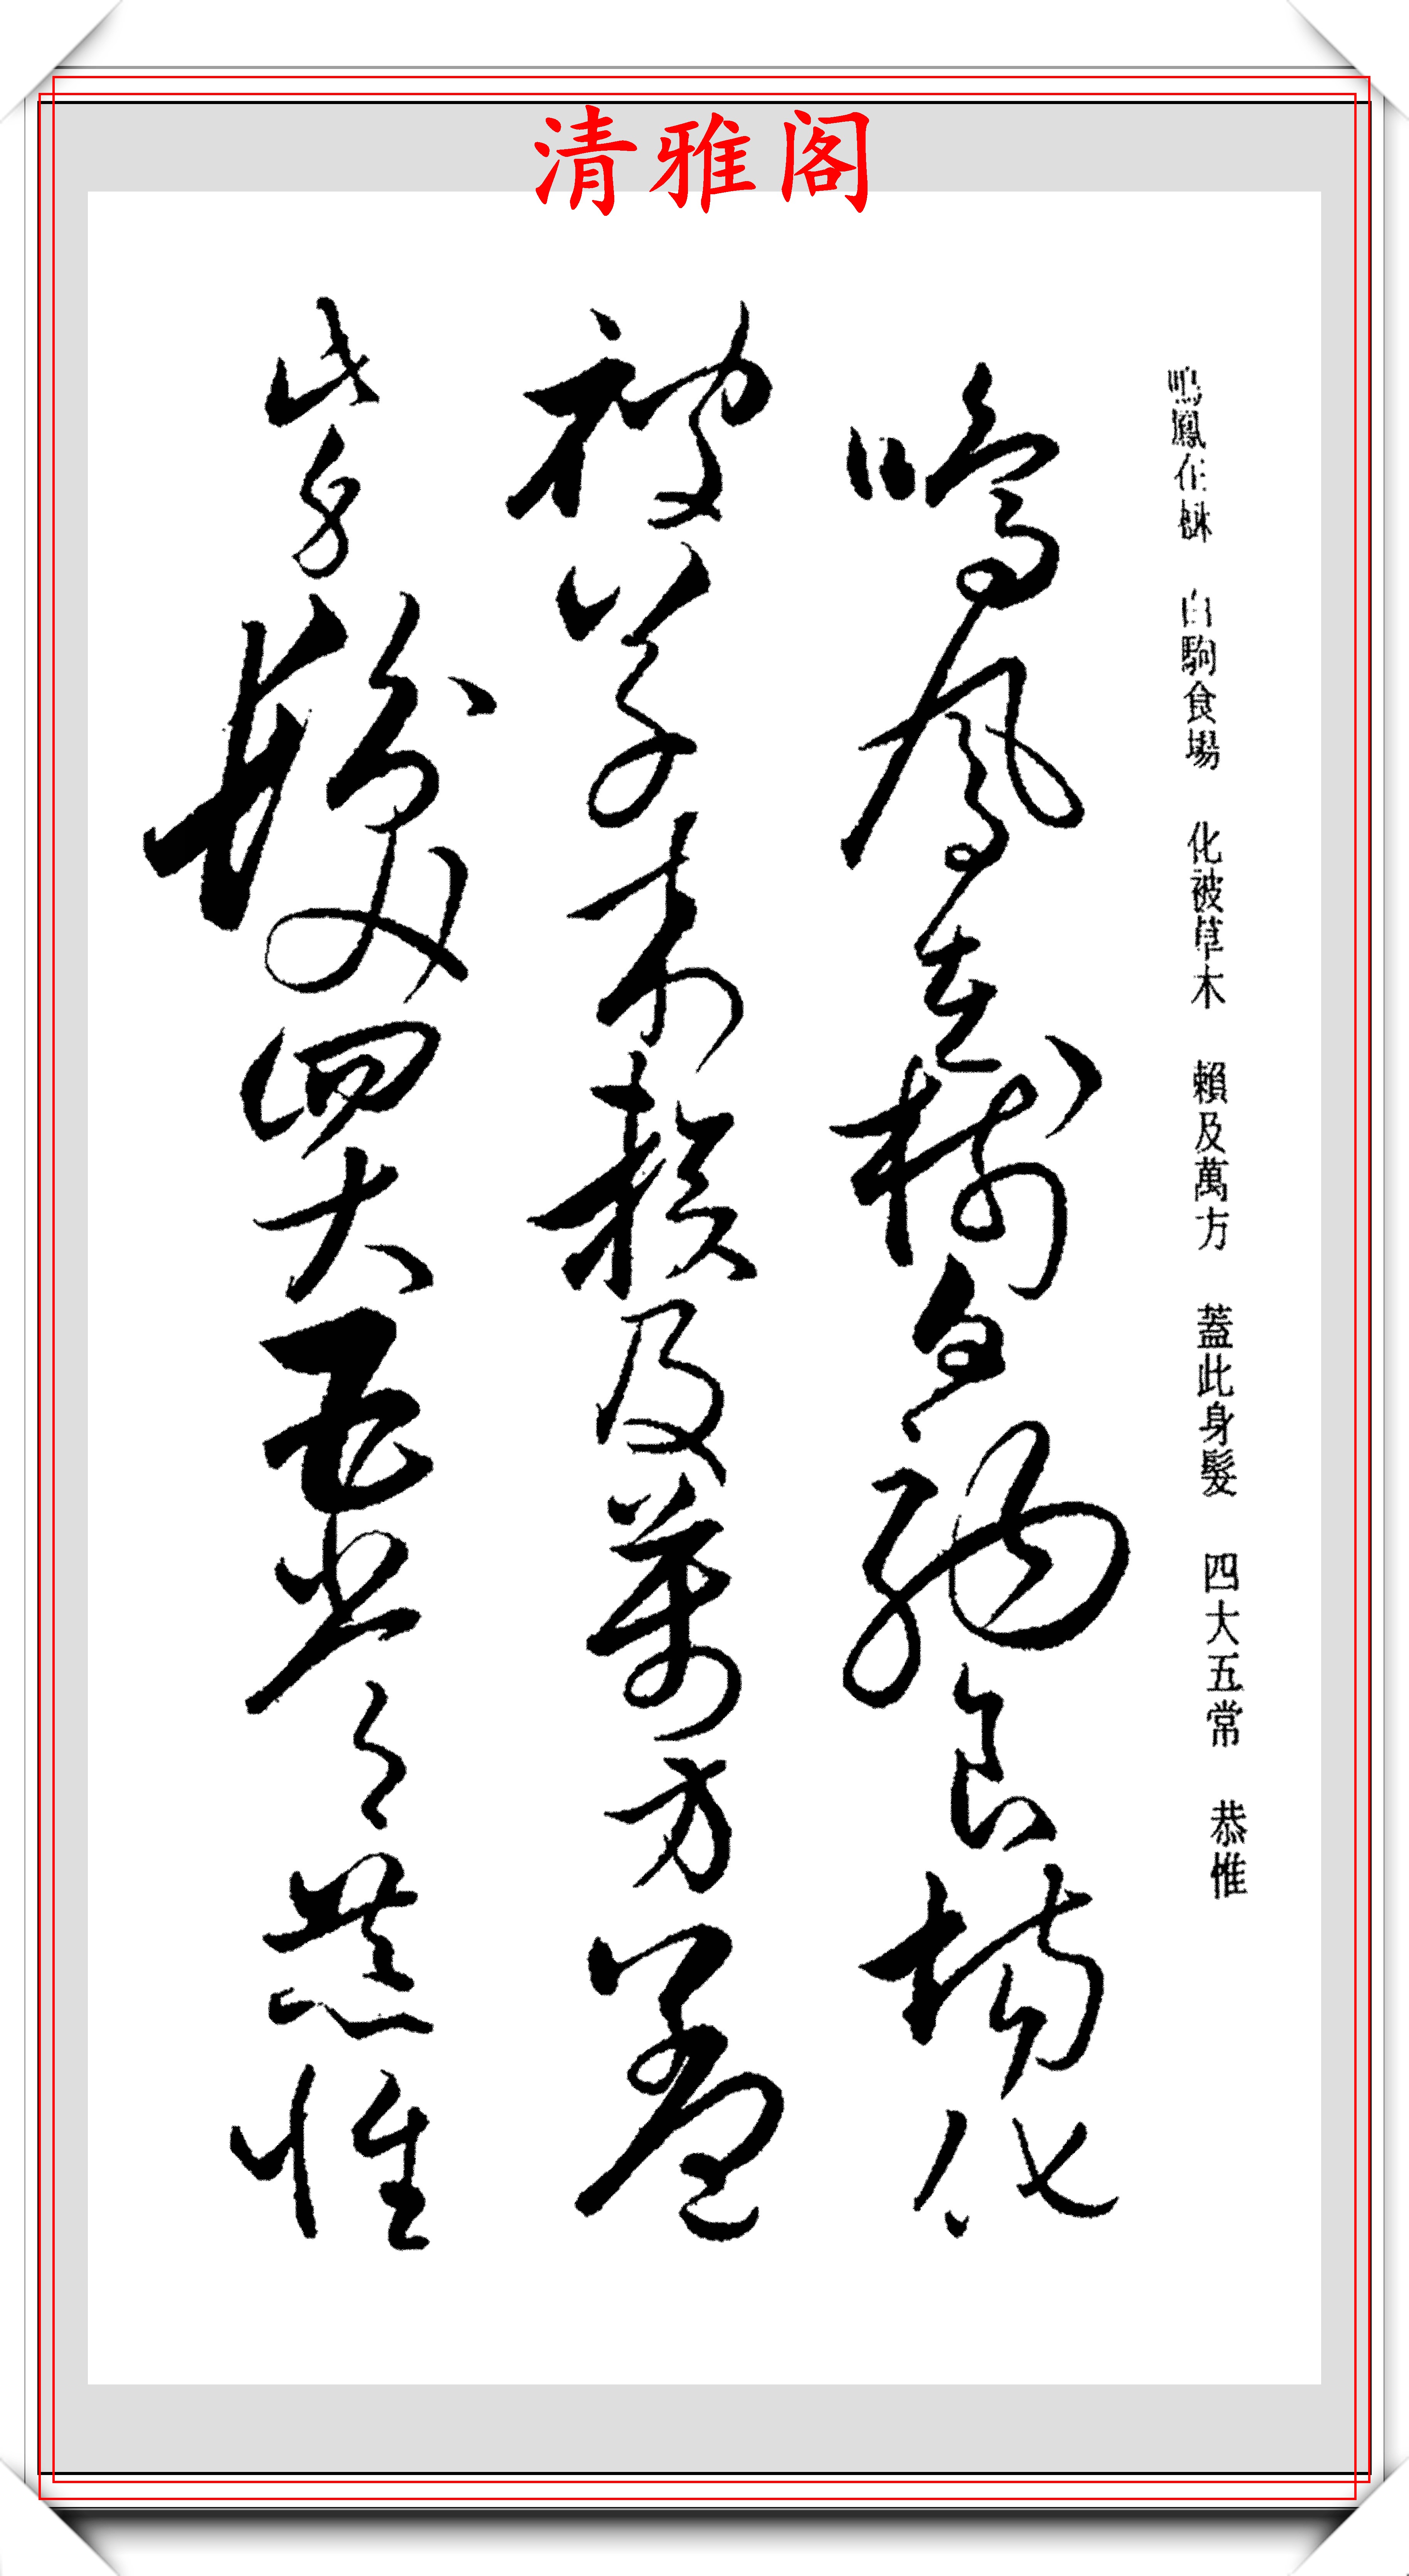 清雅阁
鳴鳳在樹 白駒食場 化被草木 賴及萬方 蓋此身髮 四大五常 恭惟
鳴鳳在樹白駒食場化
被草木賴及萬方蓋
此身髮四大五常恭惟